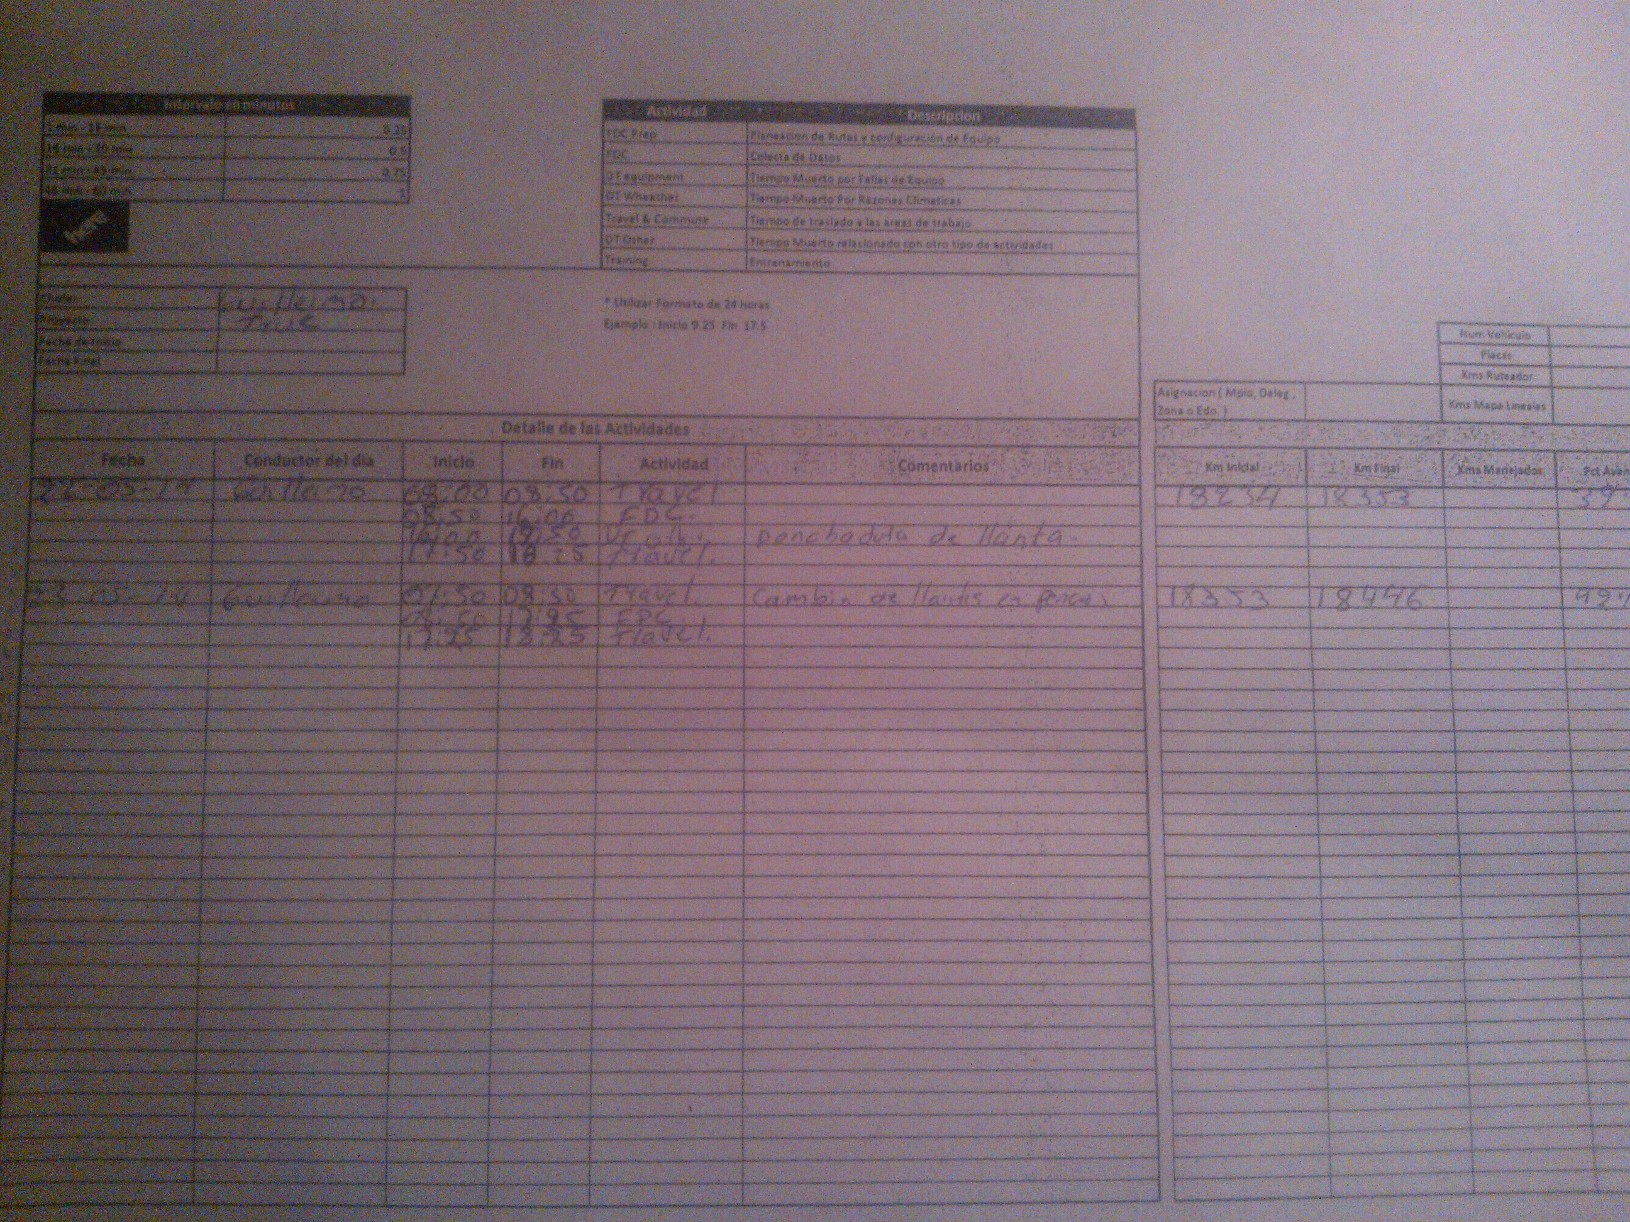 Intervalo en minutos
1 min - 15 min 0.25
16 min - 30 min 0.5
31 min - 45 min 0.75
46 min - 60 min 1
Actividad Descripcion
FDC Prep Planeacion de Rutas y configuración de Equipo
FDC Colecta de Datos
DT equipment Tiempo Muerto por Fallas de Equipo
DT Wheather Tiempo Muerto Por Razones Climaticas
Travel & Commute Tiempo de traslado a las areas de trabajo
DT Other Tiempo Muerto relacionado con otro tipo de actividades
Training Entrenamiento
here
Proyecto
Fecha de Inicio
Fecha Final
* Utilizar Formato de 24 horas
Ejemplo : Inicio 9.25 Fin 17.5
Num Vehiculo
Placas
Kms Ruteador
Kms Mapa Lineales
Asignacion ( Mpio, Deleg.,
Zona o Edo. )
Detalle de las Actividades
Fecha Conductor del dia Inicio Fin Actividad Comentarios Km Inicial Km Final Kms Manejados Pct Avan
Guillermo 08:00 08:50 Travel 18234 18353
08:50 16:00 FDC.
16:00 17:50 ponchadura de llanta.
17:50 18:25 Travel.
Guillermo 07:50 08:50 Travel. Cambio de llantas en 18353 18446
FDC
17:25 18:25 Travel.